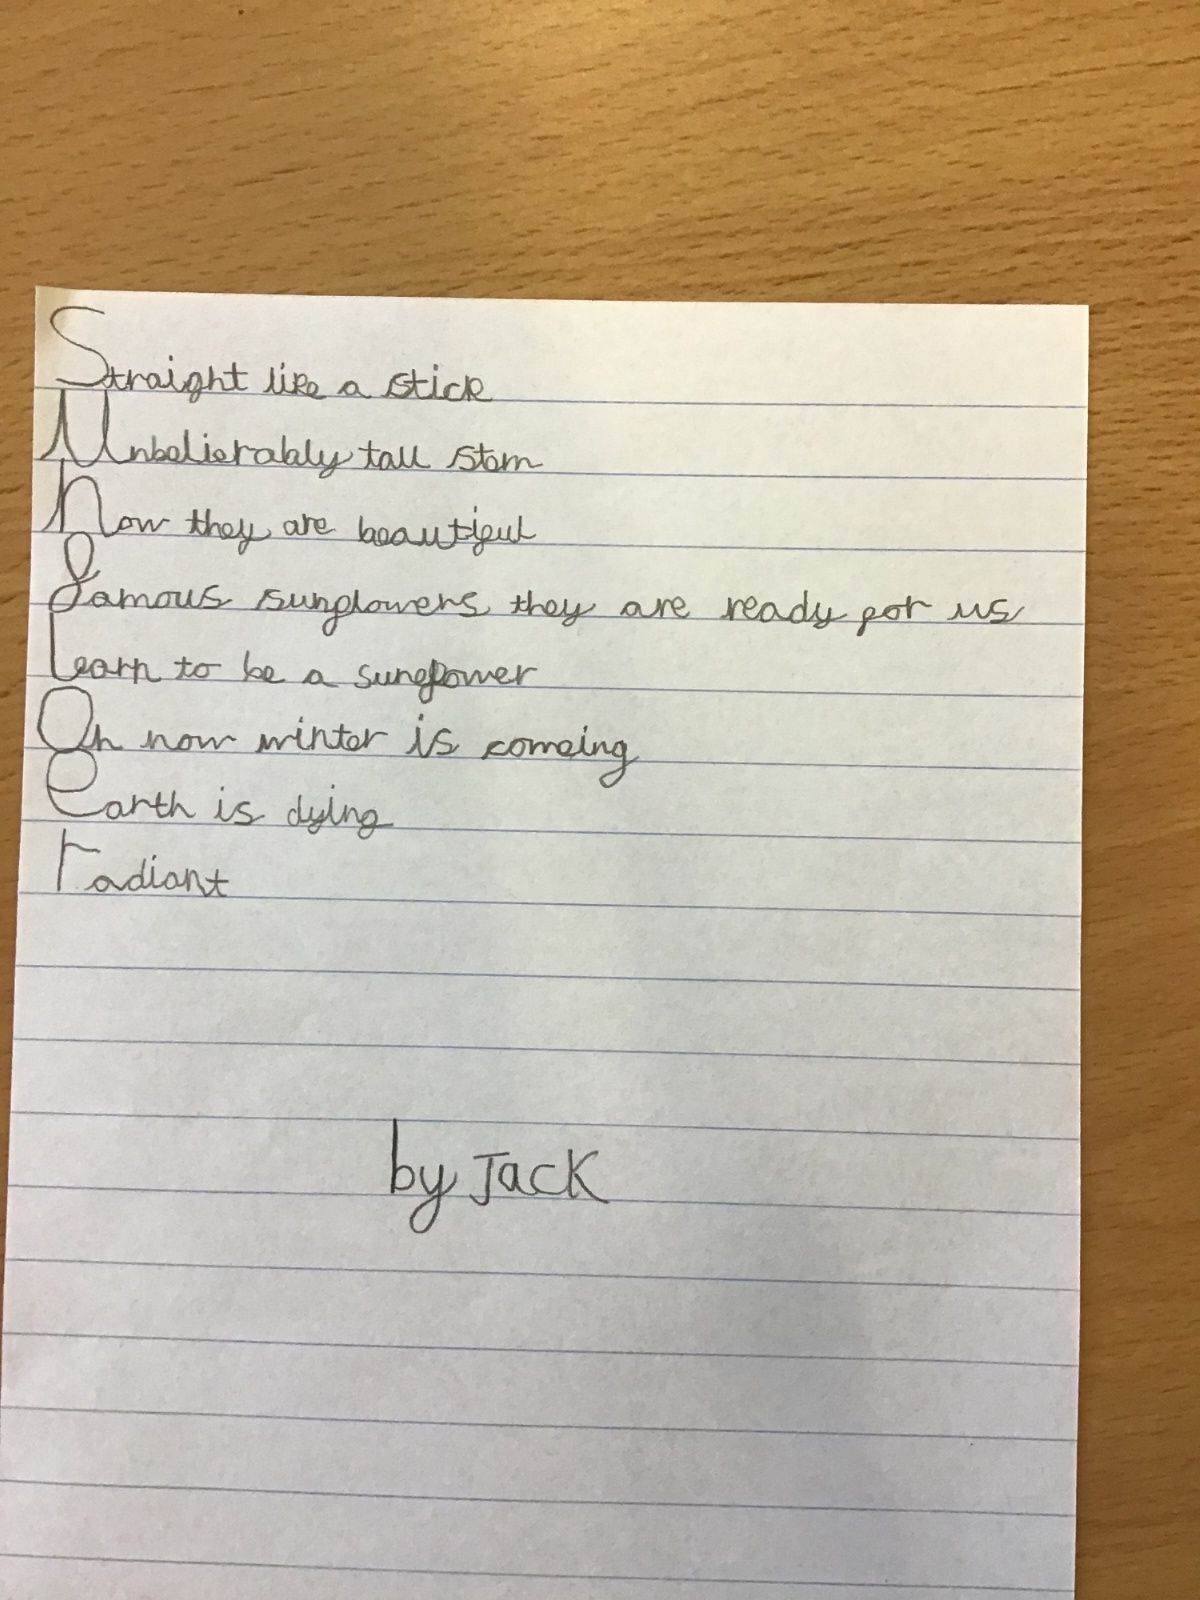 Straight like a stick
Unbelievably tall stem
now they are beautiful
famous sunflowers they are ready for us
learn to be a sunflower
Oh now winter is comeing
earth is dying
radiant
by Jack